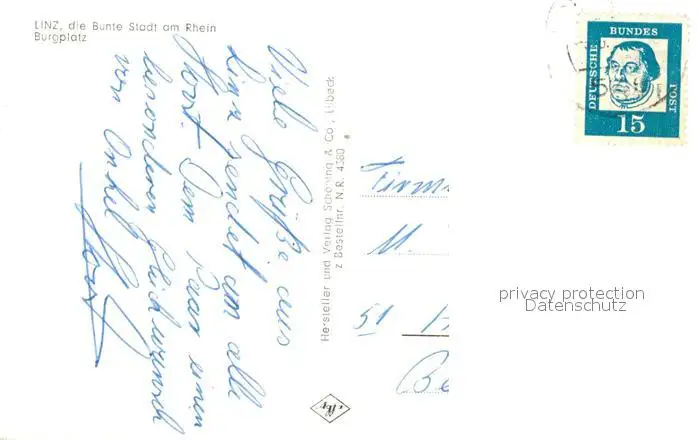 LINZ, die Bunte Stadt am Rhein
Burgplatz
Viele Grüße aus
Linz sendet am alle
Horst. Dem Paar einen
besonderen Glückwunsch
von Onkel Horst
Hersteller und Verlag Schöning & Co., Lübeck
z Bestellnr. N.R. 4380
DEUTSCHE
BUNDES
POST
15
Firm
M.
51
privacy protection
Datenschutz